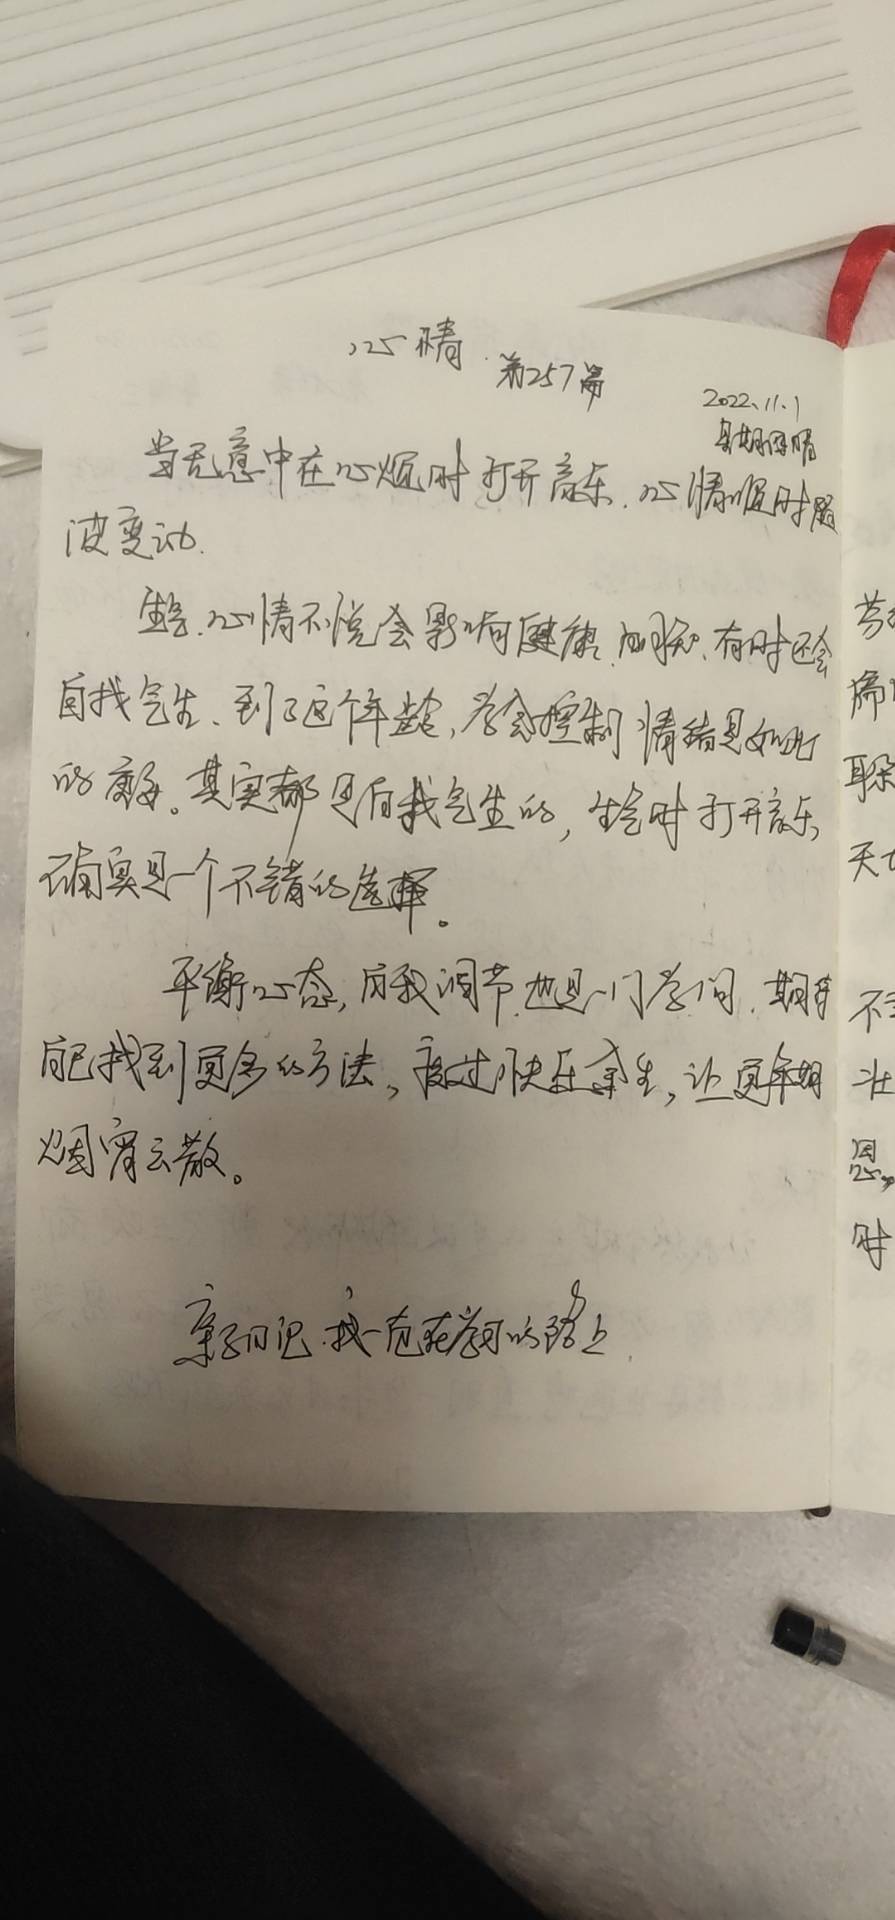 心情
第257篇
2022.11.1
星期二 晴
当无意中在心烦时打开音乐.心情顺时随
波变动.
生气.心情不悦会影响健康.明知.有时还会
自找气生、到了这个年龄,学会控制情绪是如此
的重要。其实都是自找气生的,生气时打开音乐
确实是一个不错的选择。
平衡心态,自我调节.也是一门学问.期待
自己找到更多的方法,度过快乐余生,让更年期
烟宵云散。
亲子日记.我一直在学习的路上
芬
席
耶
天
不
壮
恩,
时